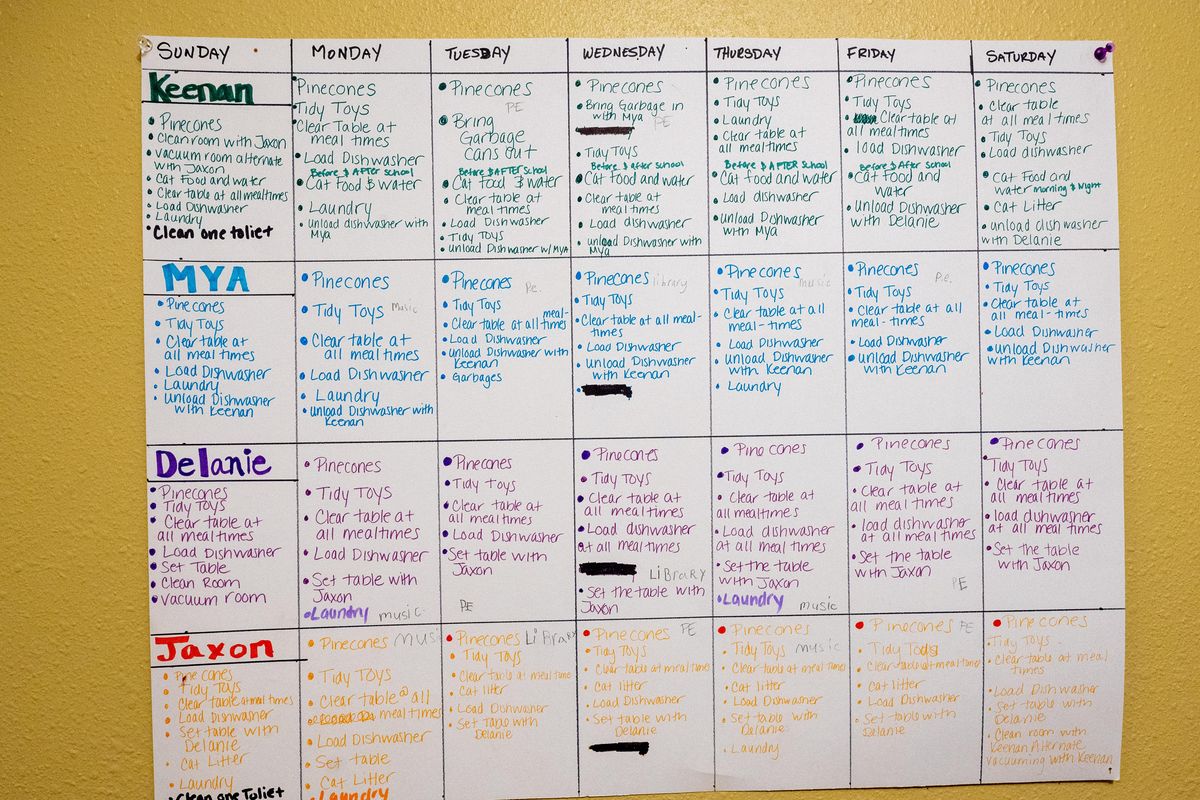 SUNDAY
MONDAY
TUESDAY
WEDNESDAY
THURSDAY
FRIDAY
SATURDAY
Keenan
• Pinecones
• Clean room with Jaxon
• Vacuum room alternate
with Jaxon
• Cat Food and water
• Clear table at all mealtimes
• Load Dishwasher
• Laundry
• Clean one toliet
Pinecones
Tidy Toys
Clear Table at
meal times
• Load Dishwasher
Before & AFTER School
• Cat Food & water
• Laundry
• Unload dishwasher with
Mya
• Pinecones
PE
• Bring
Garbage
cans out
Before & AFTER School
• Cat food & water
• Clear table at
meal times
• Load Dishwasher
• Tidy Toys
• Unload Dishwasher w/ MYA
• Pinecones
• Bring Garbage in
with Mya
PE
• Tidy Toys
Before & After School
• Cat Food and water
• Clear table at
meal times
• Load dishwasher
• unload Dishwasher with
Mya
• Pinecones
• Tidy Toys
• Laundry
• Clear table at
all mealtimes
Before & AFTER School
• Cat food and water
• Load dishwasher
• Unload Dishwasher
with Mya
• Pinecones
• Tidy Toys
Clear table at
all meal times
• load Dishwasher
Before & After School
• Cat Food and
water
• Unload Dishwasher
with Delanie
• Pinecones
• Clear table
at all meal times
• Tidy Toys
• Load dishwasher
• Cat Food and
water morning & Night
• Cat Litter
• unload dishwasher
with Delanie
MYA
• Pinecones
• Tidy Toys
• Clear table at
all meal times
• Load Dishwasher
• Laundry
• Unload Dishwasher
with Keenan
• Pinecones
• Tidy Toys Music
• Clear table at
all mealtimes
• Load Dishwasher
• Laundry
• Unload Dishwasher with
Keenan
• Pinecones
P.e.
• Tidy Toys
• Clear table at all meal-
times
• Load Dishwasher
• unload Dishwasher with
Keenan
• Garbages
• Pinecones library
• Tidy Toys
• Clear table at all meal-
times
• Load Dishwasher
• Unload Dishwasher
with Keenan
• Pinecones
music
• Tidy Toys
• Clear table at all
meal-times
• Load Dishwasher
• Unload Dishwasher
with Keenan
• Laundry
• Pinecones
P.e.
• Tidy Toys
• Clear table at all
meal-times
• Load Dishwasher
• Unload Dishwasher
with Keenan
• Pinecones
• Tidy Toys
• Clear table at
all meal-times
• Load Dishwasher
• Unload Dishwasher
with Keenan
Delanie
• Pinecones
• Tidy Toys
• Clear table at
all meal times
• Load Dishwasher
• Set Table
• Clean Room
• Vacuum room
• Pinecones
• Tidy Toys
• Clear table at
all mealtimes
• Load Dishwasher
• Set table with
Jaxon
• Laundry music
• Pinecones
• Tidy Toys
• Clear table at
all meal times
• Load Dishwasher
• Set table with
Jaxon
PE
• Pinecones
• Tidy Toys
• Clear table at
all mealtimes
• Load dishwasher
at all meal times
LiBRARY
• Set the table with
Jaxon
• Pine cones
• Tidy Toys
• Clear table at
all mealtimes
• Load dishwasher
at all meal times
• Set the table
with Jaxon
• Laundry music
• Pinecones
• Tidy Toys
• Clear table at
all meal times
• load dishwasher
at all meal times
• Set the table
with Jaxon
PE
• Pinecones
Tidy Toys
• Clear table at
all meal times
• load dishwasher
at all meal times
• Set the table
with Jaxon
Jaxon
• Pine cones
• Tidy Toys
• Clear table at meal times
• Load Dishwasher
• Set table with
Delanie
• Cat Litter
• Laundry
• Clean one Toliet
• Pinecones MUSi
• Tidy Toys
• Clear table @ all
meal times
• Load Dishwasher
• Set table
• Cat Litter
• Laundry
• Pinecones LiBrary
• Tidy Toys
• Clear table at meal time
• Cat litter
• Load Dishwasher
• Set Table with
Delanie
• Pinecones PE
• Tidy Toys
• Clear table at meal times
• Cat litter
• Load Dishwasher
• Set table with
Delanie
• Pinecones
• Tidy Toys music
• Clear table at meal times
• Cat litter
• Load Dishwasher
• Set table with
Delanie
• Laundry
• Pinecones PE
• Tidy Tods
• Clear table at meal times
• Cat litter
• Load Dishwasher
• Set table with
Delanie
• Pinecones
• Tidy Toys
• Clear table at meal
times
• Load Dishwasher
• Set table with
Delanie
• Clean room with
Keenan Alternate
vacuuming with Keenan